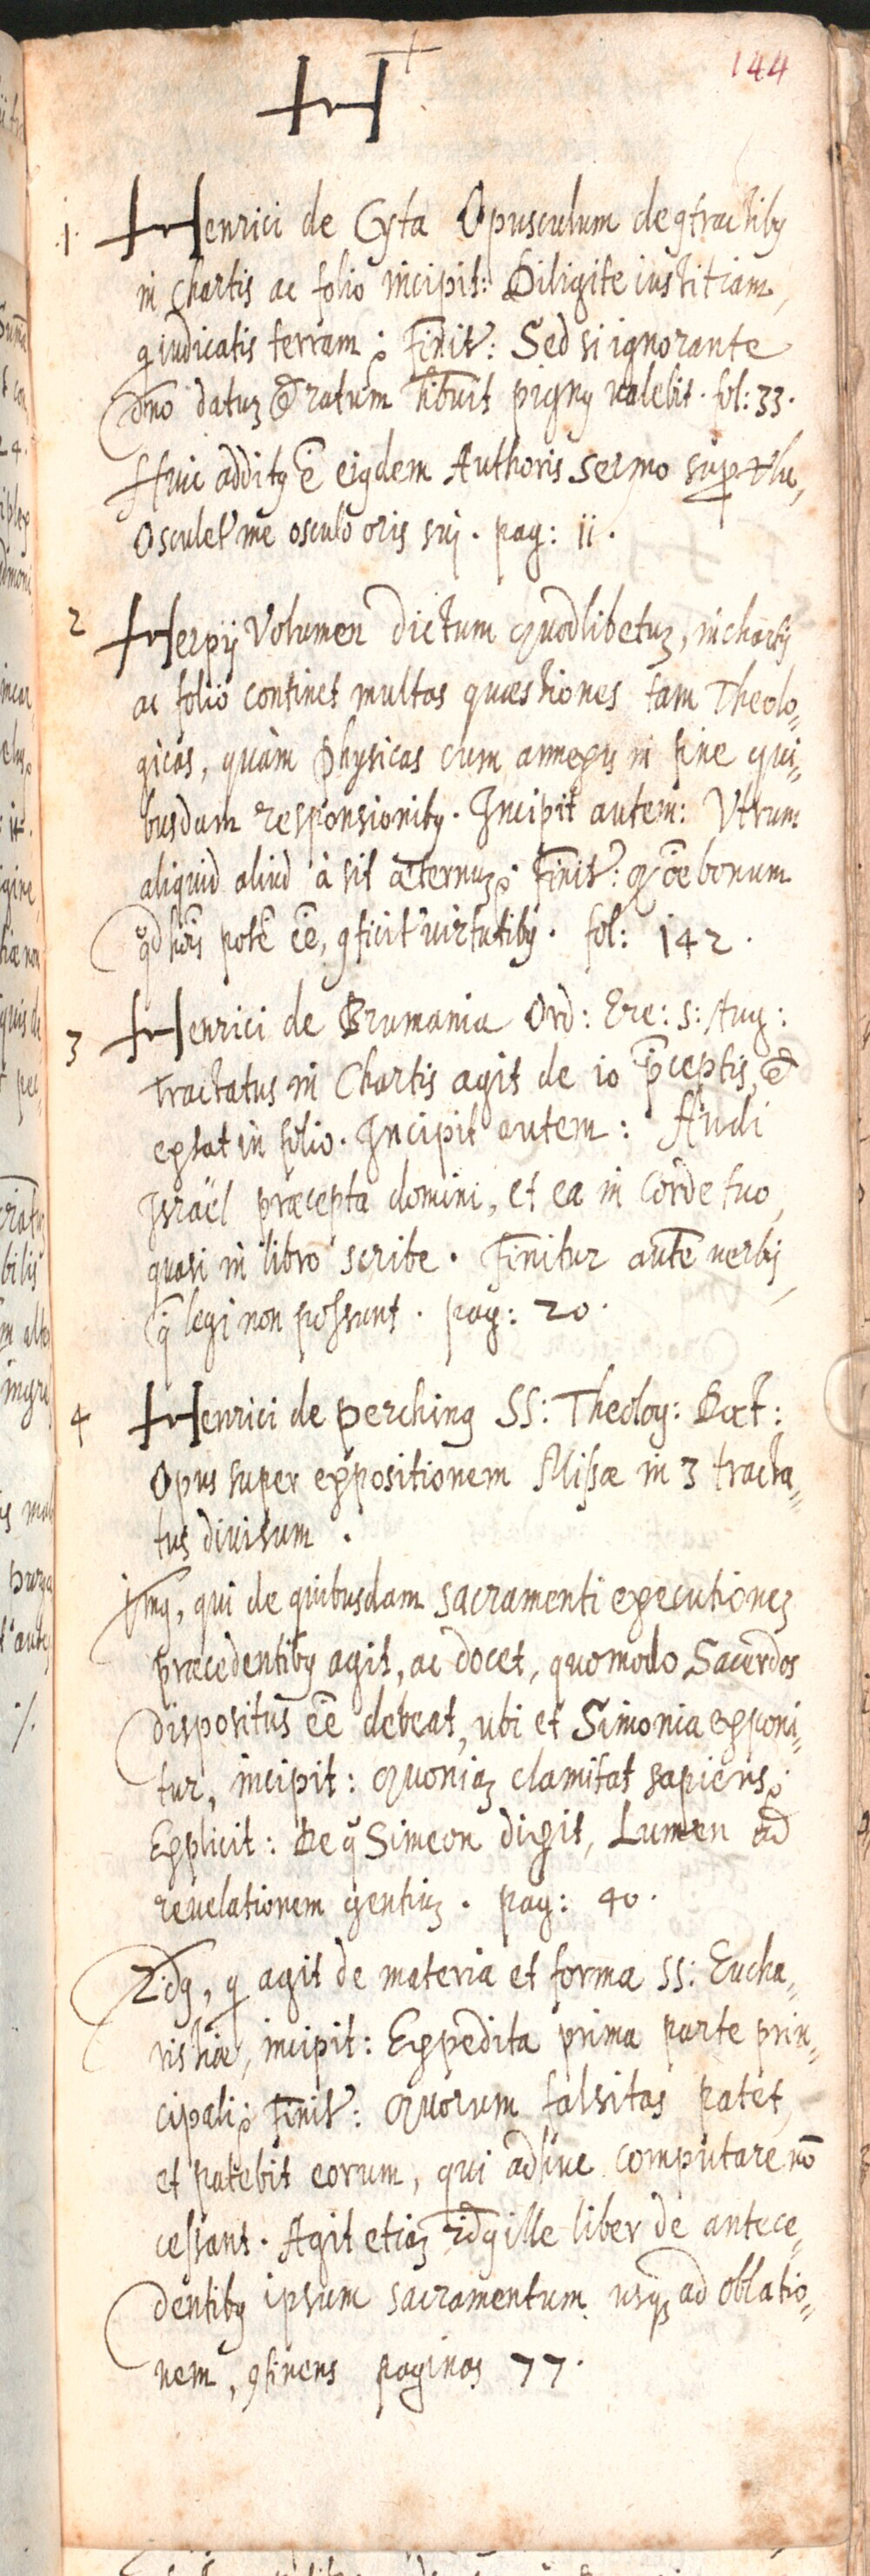 144
H
1. Henrici de Cyta Opusculum de ꝯtractibꝰ
in chartis ac folio incipit: Diligite iustitiam,
q̨ iudicatis terram; Finit̃: Sed si ignorante
dno datuʒ et ratum hibuit pignꝰ valebit. fol: 33.
Huic additꝰ ẽ eiꝰdem Authoris sermo sup
Osculet̃ me osculo oris sui. pag: 11.
2 Herpij Volumen dictum Quodlibetuʒ, in chartis
ac folio continet multas quæstiones tam Theolo-
gicas, quàm physicas cum annexis in fine qui-
busdam responsionibꝰ. Incipit autem: Vtrum
aliquid aliud à sit æternuʒ; Finit̃: oẽ bonum
qd pote eẽ, ꝑficit̃ virtutibꝰ. fol: 142.
3 Henrici de Brumania Ord: Ere: S: Aug:
Tractatus in Chartis agit de 10 p̃ceptis, et
extat in folio. Incipit autem: Audi
Israël præcepta domini, et ea in corde tuo,
quasi in libro scribe. Finitur autẽ verbis,
q̃ legi non possunt. pag: 20.
4 Henrici de Perching SS: Theolog: Doct:
Opus super expositionem Missæ in 3 tracta-
tus divisum.
1mꝰ, qui de quibusdam sacramenti executioneʒ
præcedentibꝰ agit, ac docet, quomodo Sacerdos
dispositus eẽ debeat, ubi et Simonia exponi-
tur, incipit: Quoniaʒ clamitat sapiens;
Explicit: De q̃ Simeon dixit, Lumen ad
revelationem gentiuʒ. pag: 40.
2.dꝰ, q̨ agit de materia et forma SS: Eucha-
ristiæ, incipit: Expedita prima parte prin-
cipali; Finit̃: Quorum falsitas patet,
et patebit eorum, qui adhuc computare nõ
cessant. Agit etiaʒ 2dꝰ ille liber de antece-
dentibꝰ ipsum sacramentum usqʒ ad oblatio-
nem, ꝯtinens paginas 77.